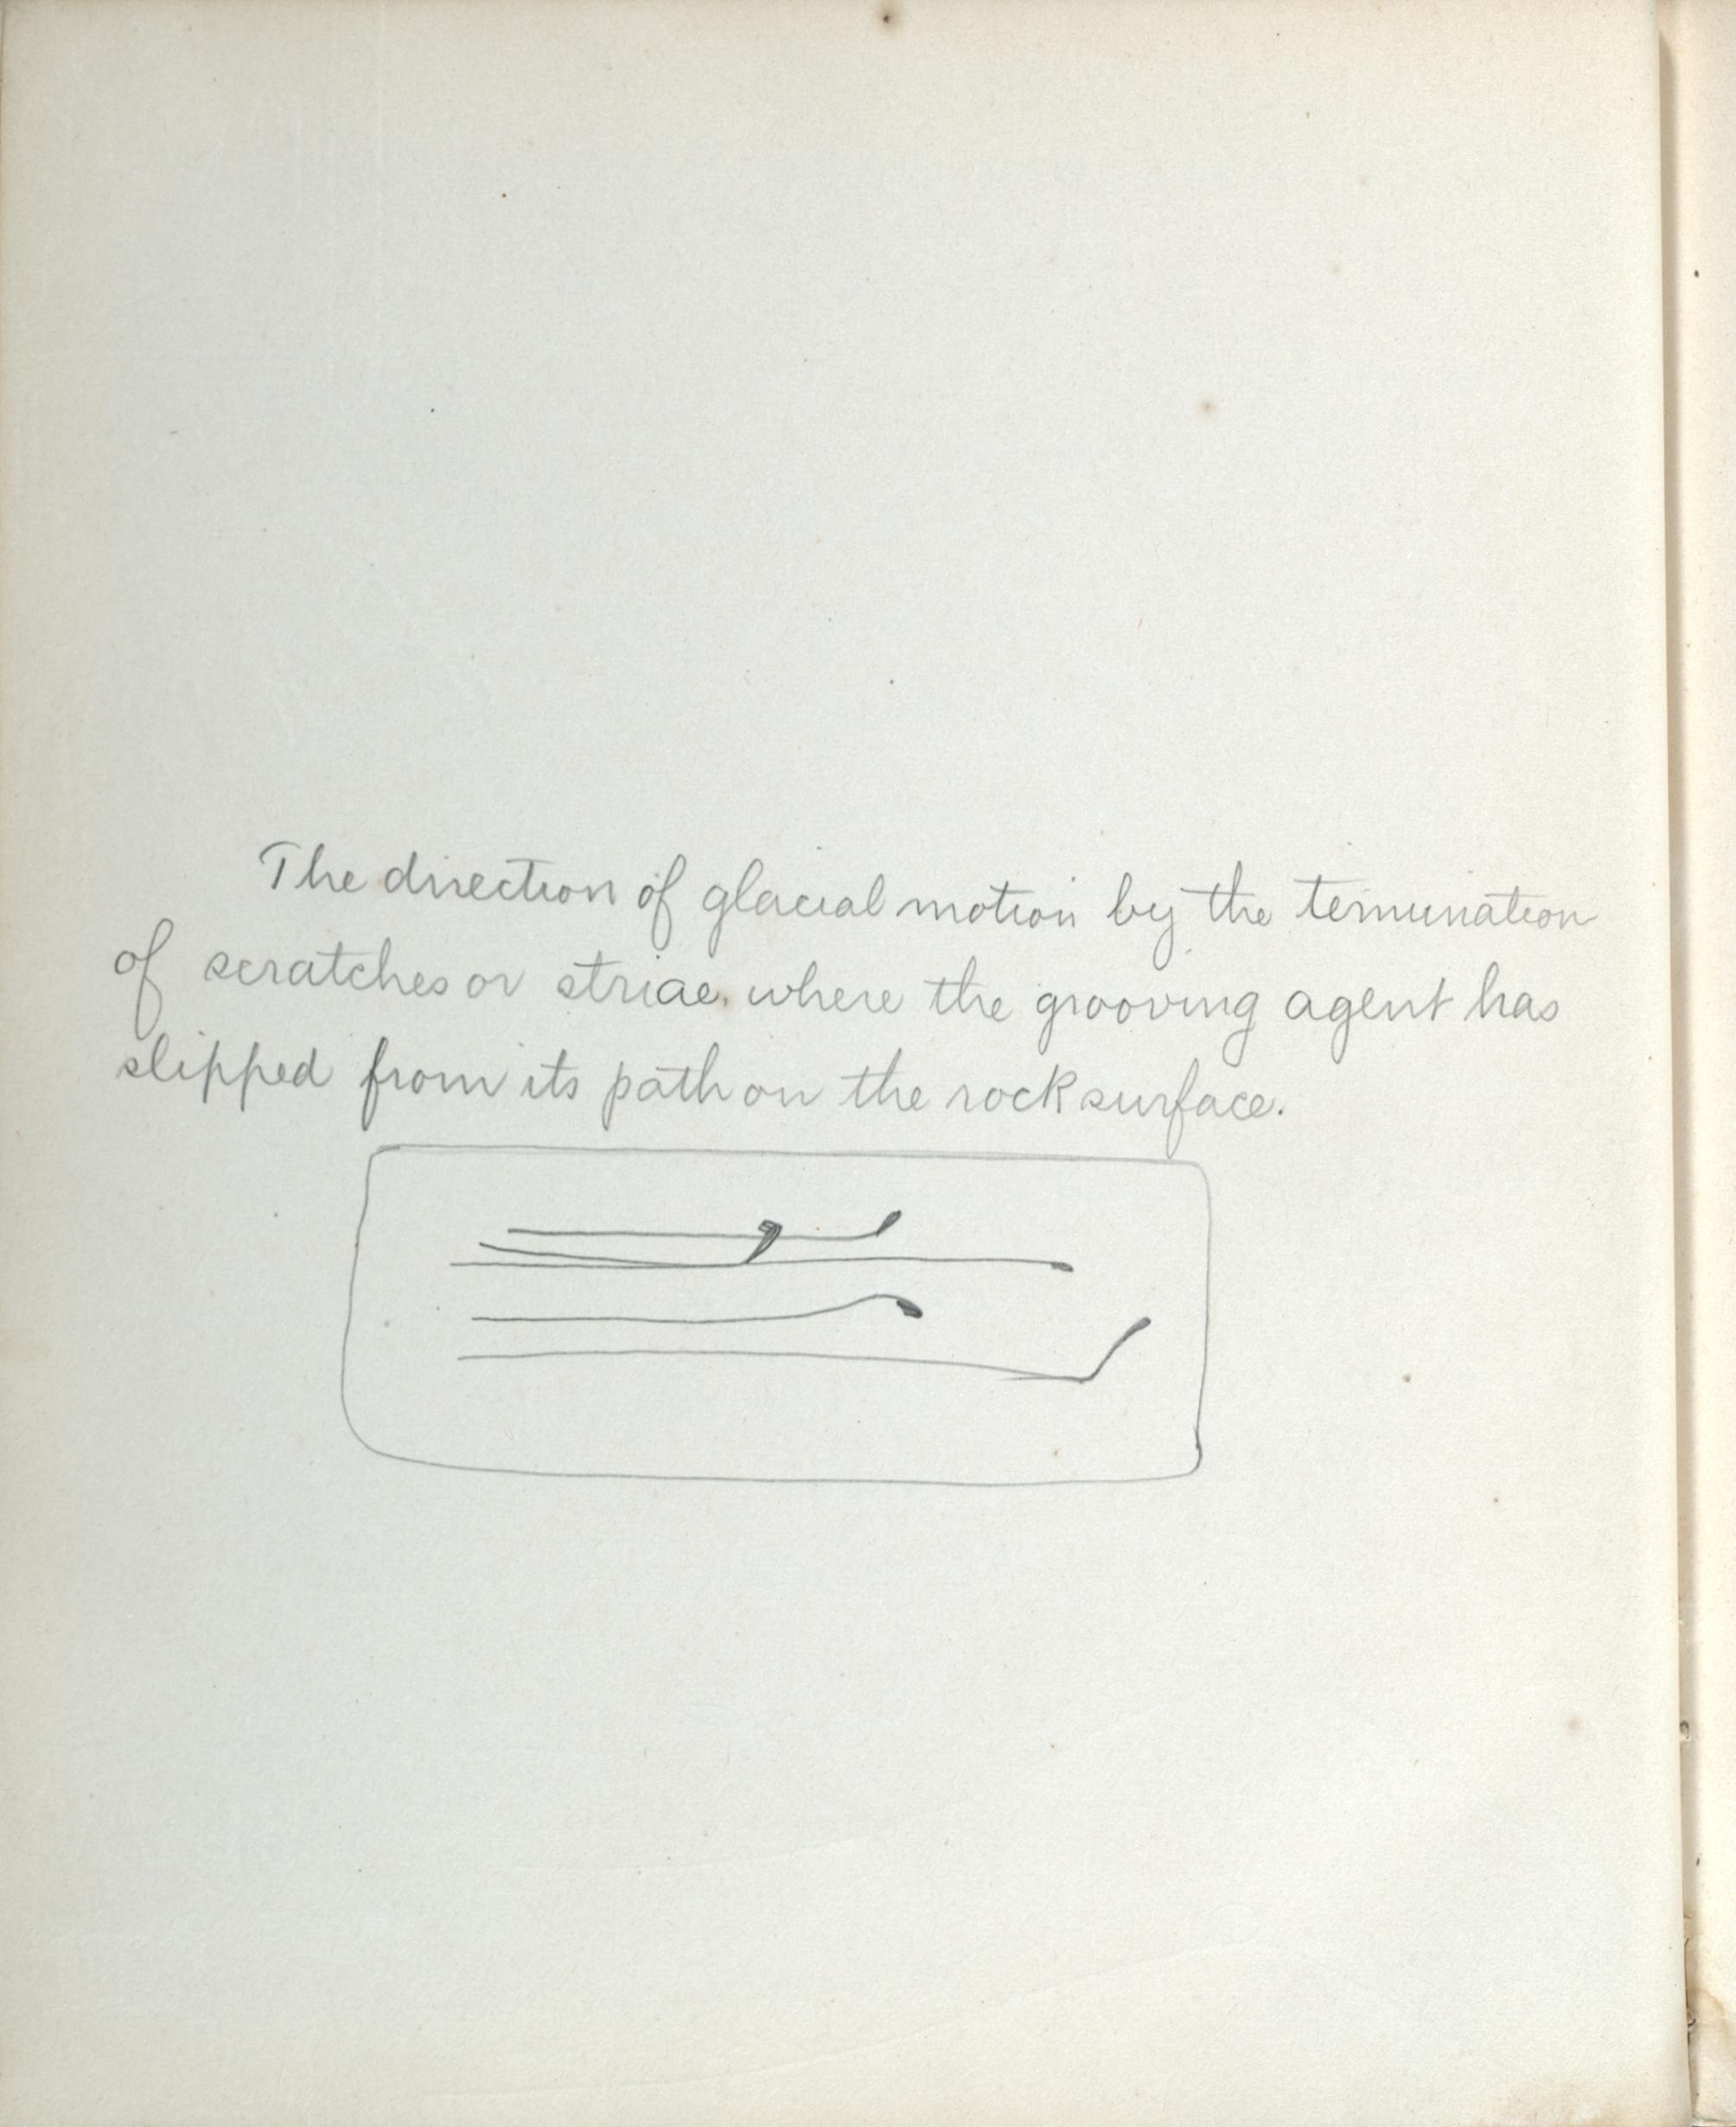 The direction of glacial motion by the termination
of scratches or striae, where the grooving agent has
slipped from its path on the rock surface.